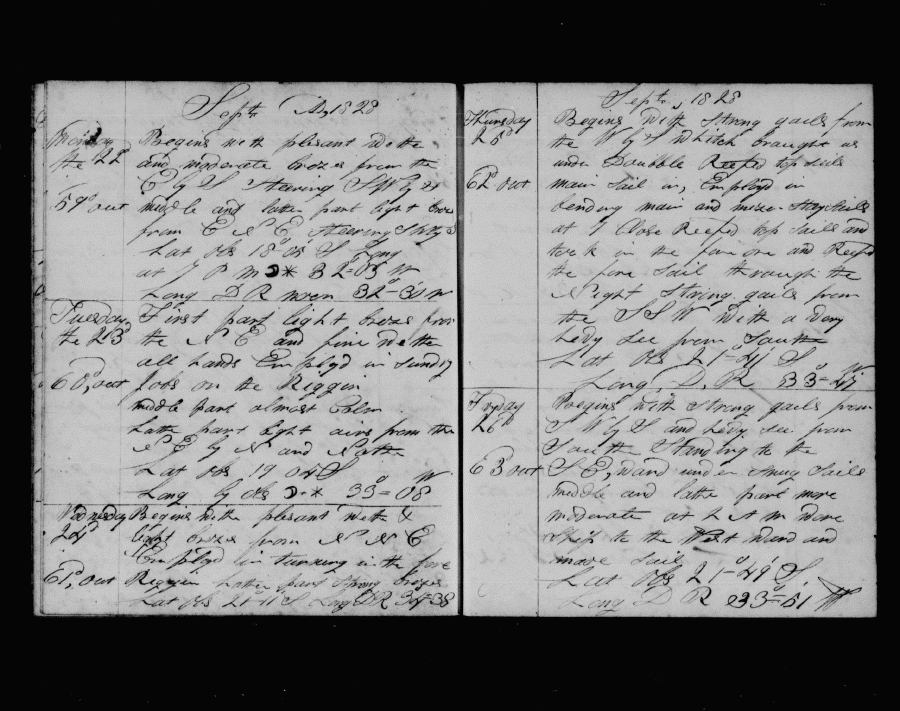 Septr 1828
Monday Begins with plesant wethr
the 22d and moderate brezes from the
E by S Steering SW by W
59d out middle and latter part light brezes
from E N E Steering
Lat obs 18°=05 S Long
at P M ☽ * 32=05 W
Long D R 32°=30 W
Tuesday First part light brezes from
the 23d the N E and fine wethr
all hands Employd in sundry
60d, out Jobs on the Riggin
middle part almost Calm
Latter part light airs from the
N E by N and North
Lat obs 19°04 S
Long by obs ☽ * 33°=08 W
Wednesday Begins with plesant wethr &
24th light brezes from N N E
Employd in turning in the fore
61d, out Riggin Latter part Strong brezes
Lat obs 21°11 S Long D R 34=38
Septr 1828
Thursday Begins With Strong gails from
25th the W by S Whitch braught us
under Doubble Reefed top sails
62d out main sail in, Employd in
bending main and mizen Stay sails
at Close Reefed top sails and
took in the and Reefd
the fore sail through the
Night Strong gails from
the S S W With a very
hevy see from South
Lat obs 21=41 S
Long, D, R 33°=47 W
Fryday Begins With Strong gails from
26th S W by S and hevy see from
South Standing to the
63d out S E, ward under Snug Sails
middle and latter part more
moderate at A m Ware
Ship to the West ward and
made Sail
Lat obs 21°=49 S
Long D R 33°=51 W